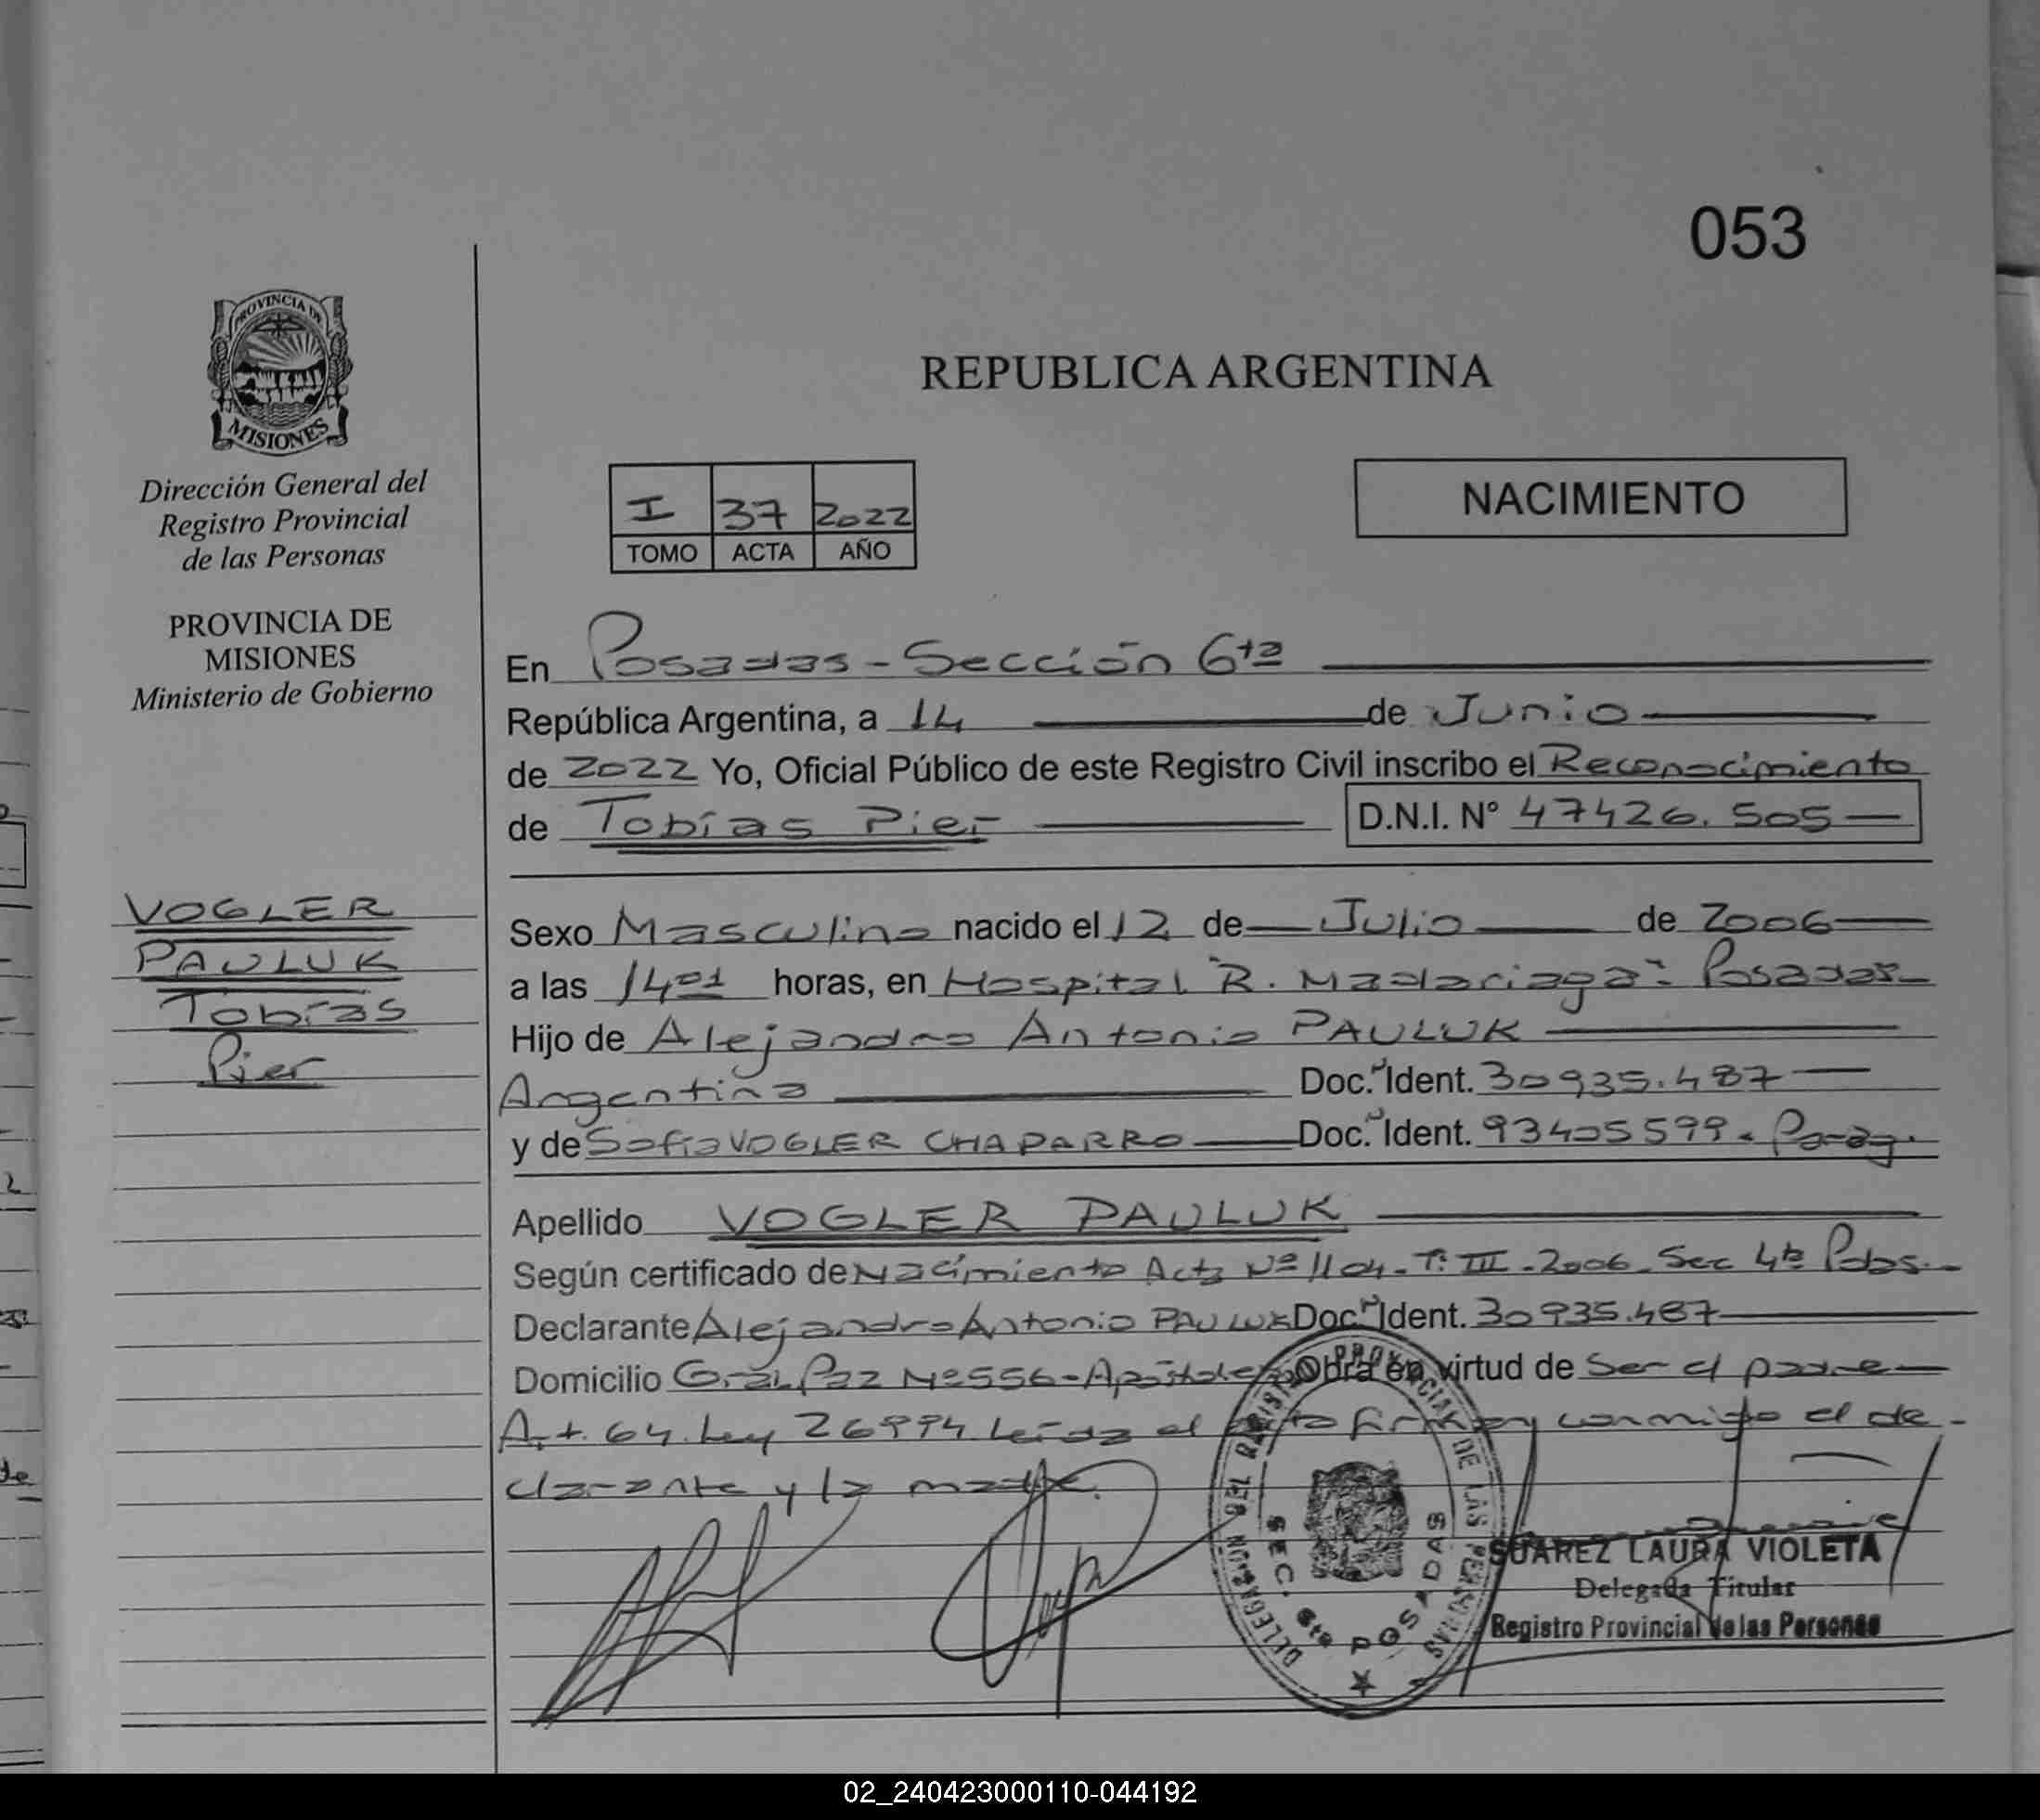 053
PROVINCIA DE
MISIONES
Dirección General del
Registro Provincial
de las Personas
PROVINCIA DE
MISIONES
Ministerio de Gobierno
VOGLER
PAULUK
Tobías
Pier
REPUBLICA ARGENTINA
I 37 2022
TOMO ACTA AÑO
NACIMIENTO
En Posadas - Sección 6ta
República Argentina, a 14 de Junio
de 2022 Yo, Oficial Público de este Registro Civil inscribo el Reconocimiento
de Tobías Pier D.N.I. N° 47426.505
Sexo Masculino nacido el 12 de Julio de 2006
a las 14 01 horas, en Hospital "R. Madariaga" Posadas
Hijo de Alejandro Antonio PAULUK
Argentino Doc. Ident. 30935.487
y de Sofia VOGLER CHAPARRO Doc. Ident. 93405599. Parag.
Apellido VOGLER PAULUK
Según certificado de Nacimiento Acta Nº 1104. T: III - 2006. Sec 4ta Pdas.
Declarante Alejandro Antonio PAULUK Doc. Ident. 30935.487
Domicilio Gral Paz Nº 556 - Apóstoles Obra en virtud de Ser el padre
Art. 64. Ley 26994 Leída el acta firman conmigo el de-
clarante y la madre.
DELEGACION DEL REGISTRO PROVINCIAL DE LAS PERSONAS
SEC. 6ta POSADAS
SUAREZ LAURA VIOLETA
Delegada Titular
Registro Provincial de las Personas
02_240423000110-044192